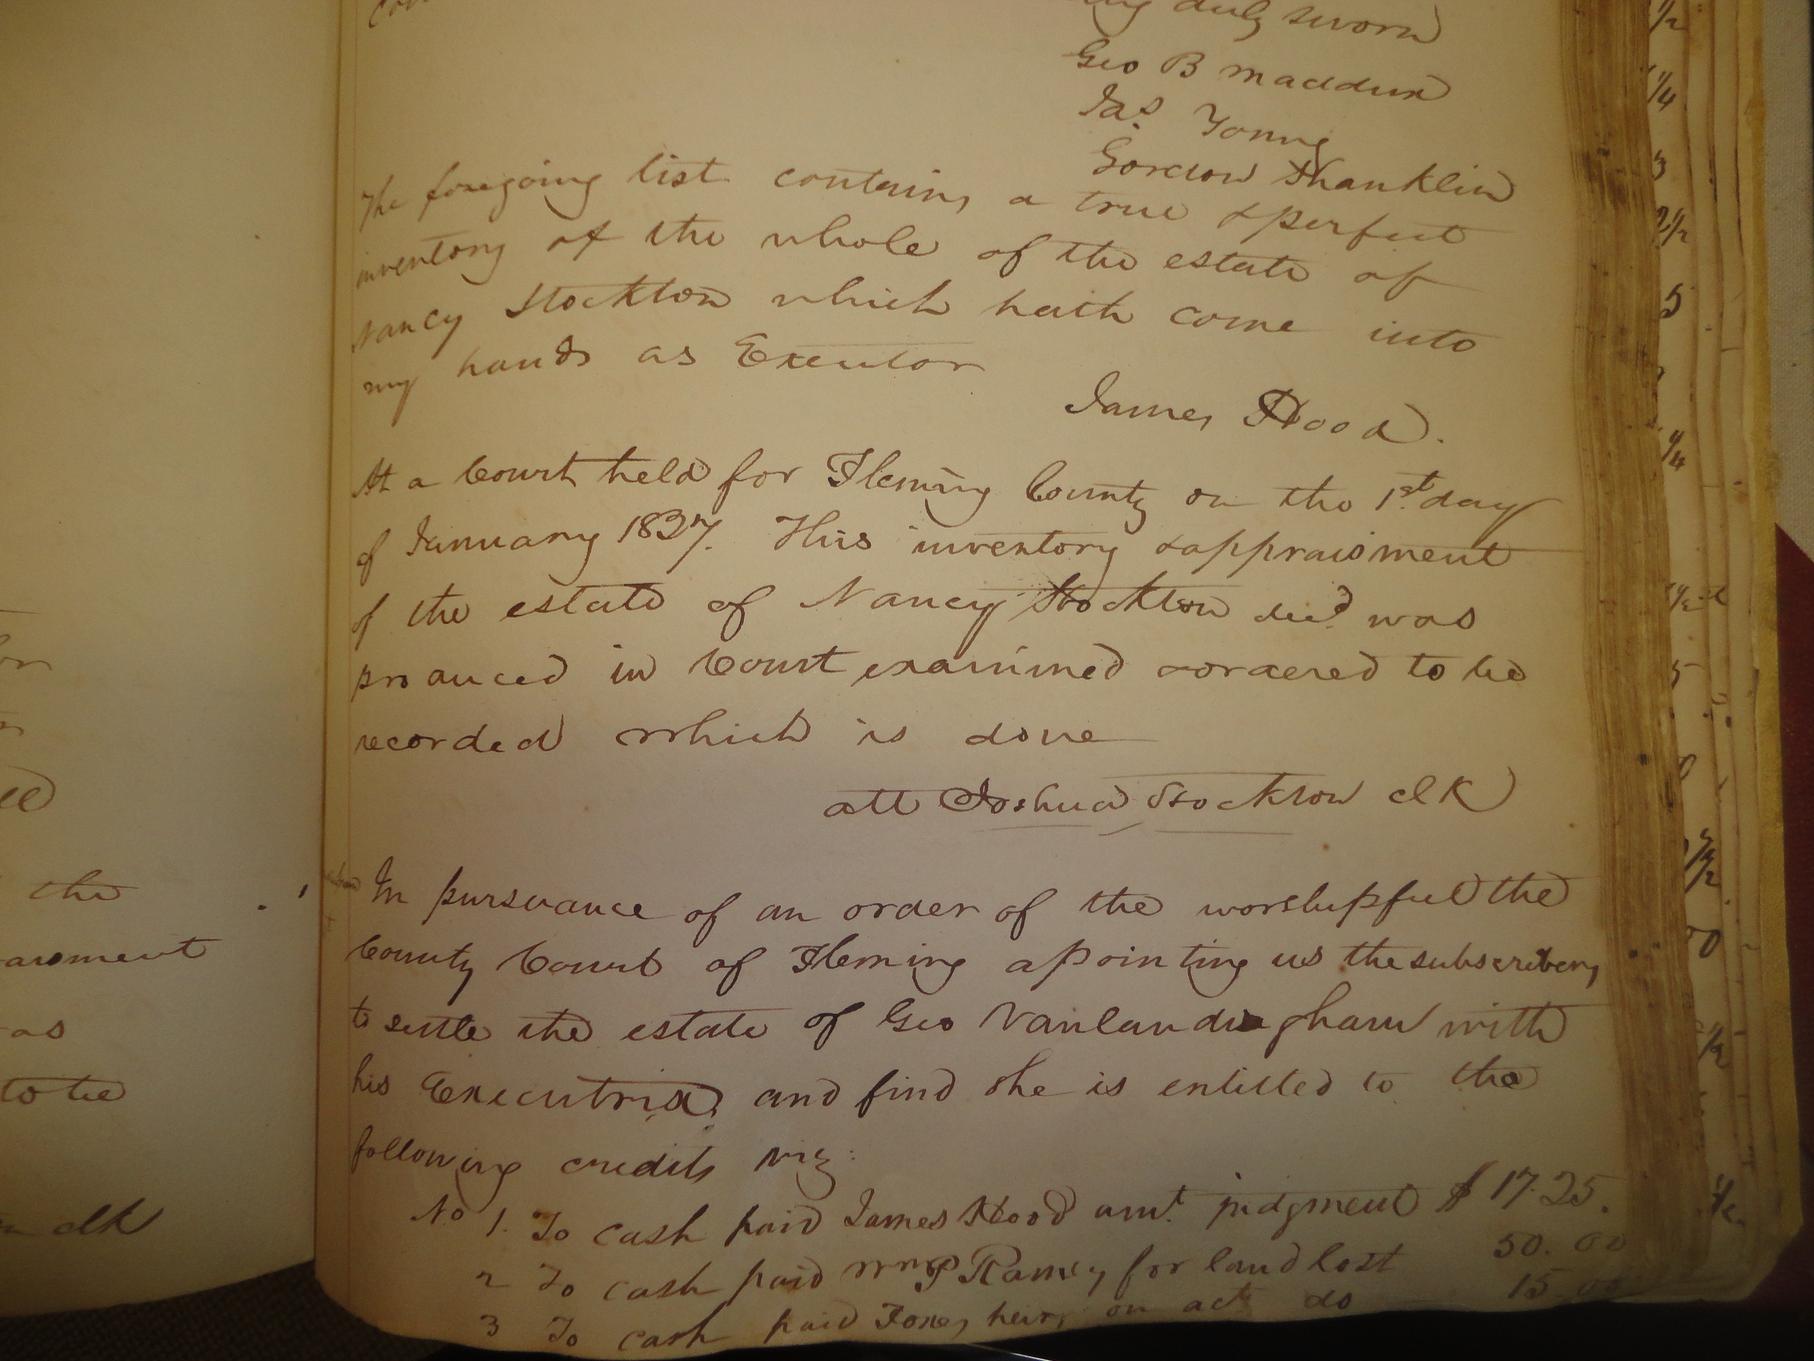 duly sworn
Geo B Maddux
Jas Young
Gordon Franklin
The foregoing list contains a true & perfect
inventory of the whole of the estate of
Nancy Stockton which hath come into
my hands as Executor
James Hood.
At a Court held for Fleming County on the 1st day
of January 1837. This inventory & appraisment
of the estate of Nancy Stockton decd was
produced in Court examined & ordered to be
recorded which is done
att Joshua Stockton clk
In pursuance of an order of the worshipfull the
County Court of Fleming apointing us the subscribers
to settle the estate of Geo Vanlandingham with
his Executrix, and find she is entitled to the
following credits viz:
No 1. To cash paid James Hood amt. judgment $ 17.25.
2 To cash paid Wm P Ramey for land lost 50.00
3 To cash paid Foxes heirs on act do 15.00
the
as
to be
clk